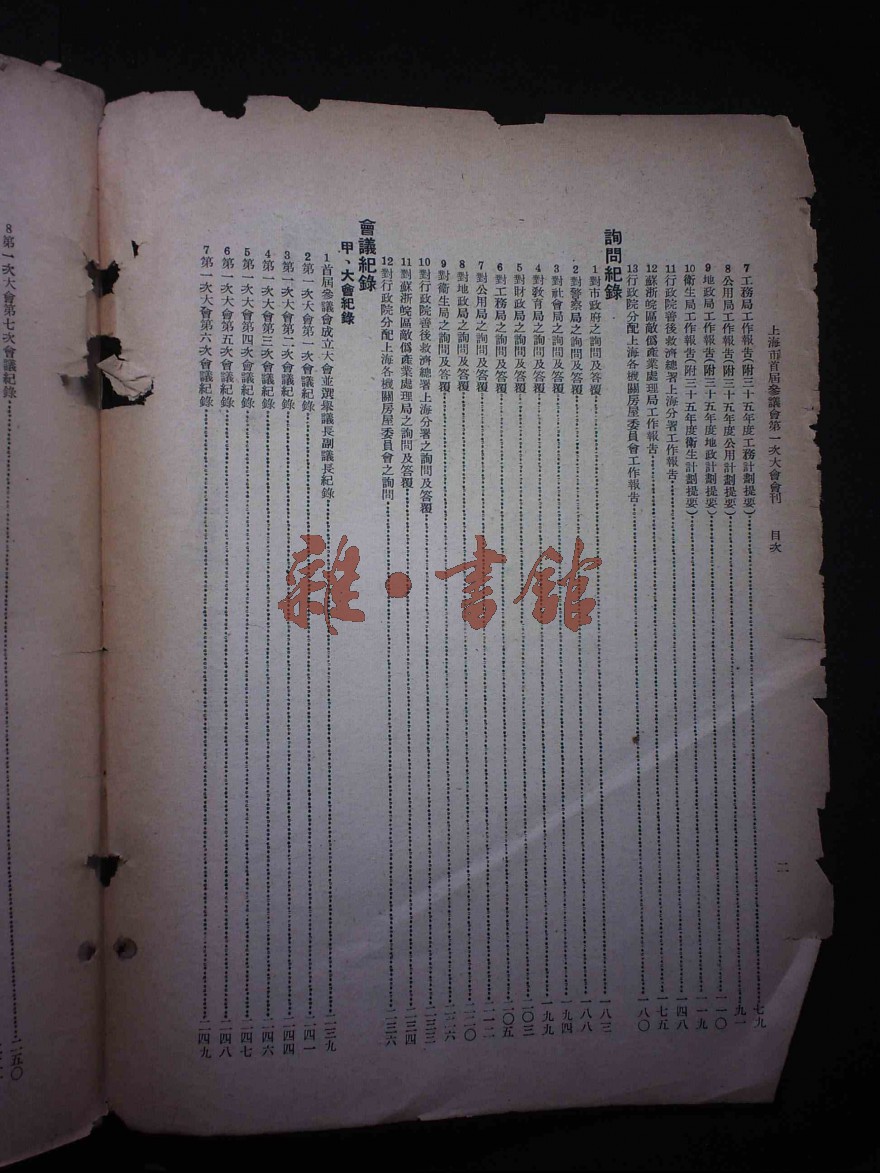 上海市首屆參議會第一次大會會刊 目次 二
7 工務局工作報告(附三十五年度工務計劃提要)……七九
8 公用局工作報告(附三十五年度公用計劃提要)……九一
9 地政局工作報告(附三十五年度地政計劃提要)……一一〇
10 衛生局工作報告(附三十五年度衛生計劃提要)……一一九
11 行政院善後救濟總署上海分署工作報告……一四八
12 蘇浙皖區敵僞產業處理局工作報告……一七五
13 行政院分配上海各機關房屋委員會工作報告……一八〇
詢問紀錄
1 對市政府之詢問及答覆……一八三
2 對警察局之詢問及答覆……一八八
3 對社會局之詢問及答覆……一九四
4 對教育局之詢問及答覆……一九九
5 對財政局之詢問及答覆……二〇三
6 對工務局之詢問及答覆……二〇五
7 對公用局之詢問及答覆……二一二
8 對地政局之詢問及答覆……二二〇
9 對衛生局之詢問及答覆……二二六
10 對行政院善後救濟總署上海分署之詢問及答覆……二三三
11 對蘇浙皖區敵僞產業處理局之詢問及答覆……二三四
12 對行政院分配上海各機關房屋委員會之詢問……二三六
會議紀錄
甲、大會紀錄
1 首屆參議會成立大會並選舉議長副議長紀錄……二三九
2 第一次大會第一次會議紀錄……二四一
3 第一次大會第二次會議紀錄……二四四
4 第一次大會第三次會議紀錄……二四六
5 第一次大會第四次會議紀錄……二四七
6 第一次大會第五次會議紀錄……二四八
7 第一次大會第六次會議紀錄……二四九
8 第一次大會第七次會議紀錄……二五〇
雜·書館